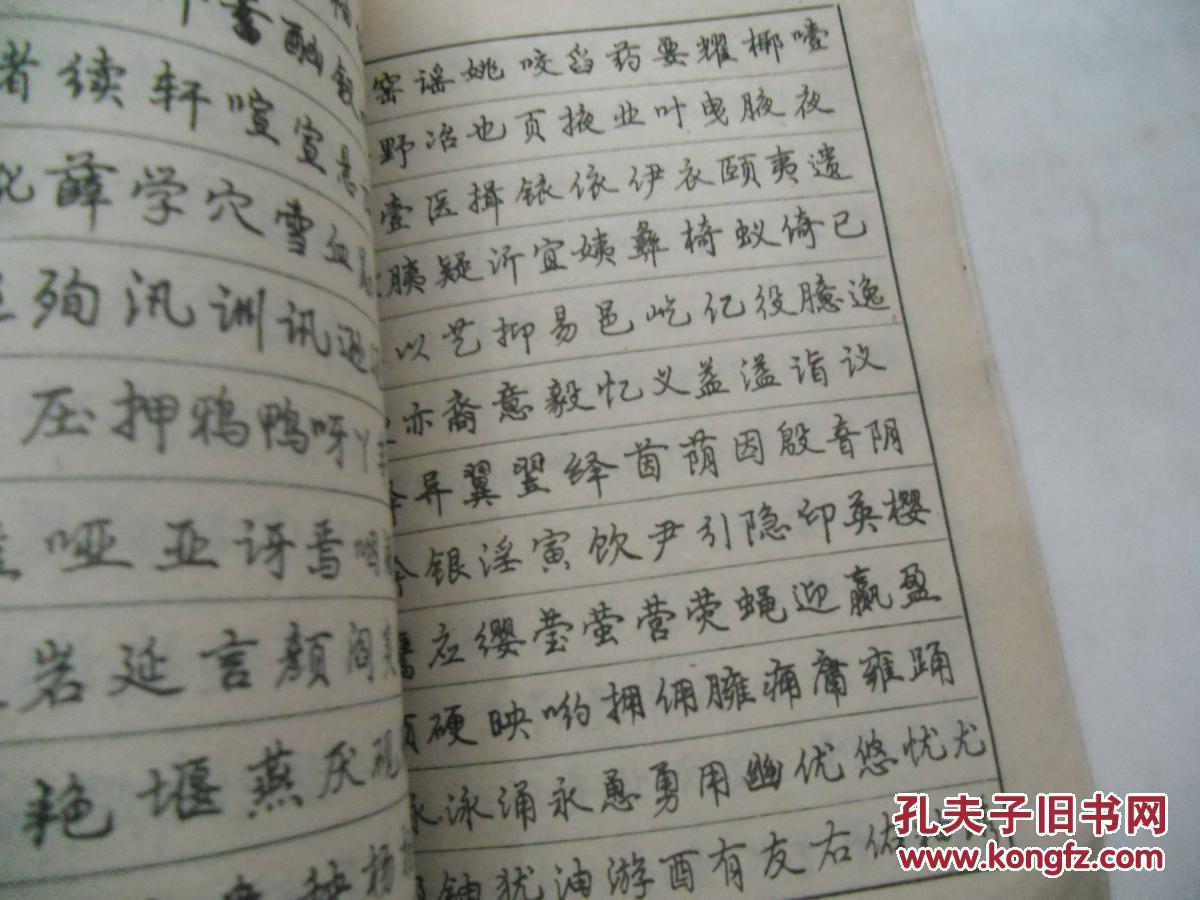 酗
者续轩喧宣
薛学穴雪血
殉汛训讯逊
压押鸦鸭呀丫
哑亚讶焉咽
岩延言颜阎
艳堰燕厌砚
秧杨
窑谣姚咬舀药要耀椰噎
野冶也页掖业叶曳腋夜
壹医揖铱依伊衣颐夷遗
胰疑沂宜姨彝椅蚁倚已
以艺抑易邑屹亿役臆逸
亦裔意毅忆义益溢诣议
异翼翌绎茵荫因殷音阴
银淫寅饮尹引隐印英樱
应缨莹萤营荧蝇迎赢盈
硬映哟拥佣臃痈庸雍踊
泳涌永恿勇用幽优悠忧尤
铀犹油游酉有友右佑
孔夫子旧书网
www.kongfz.com